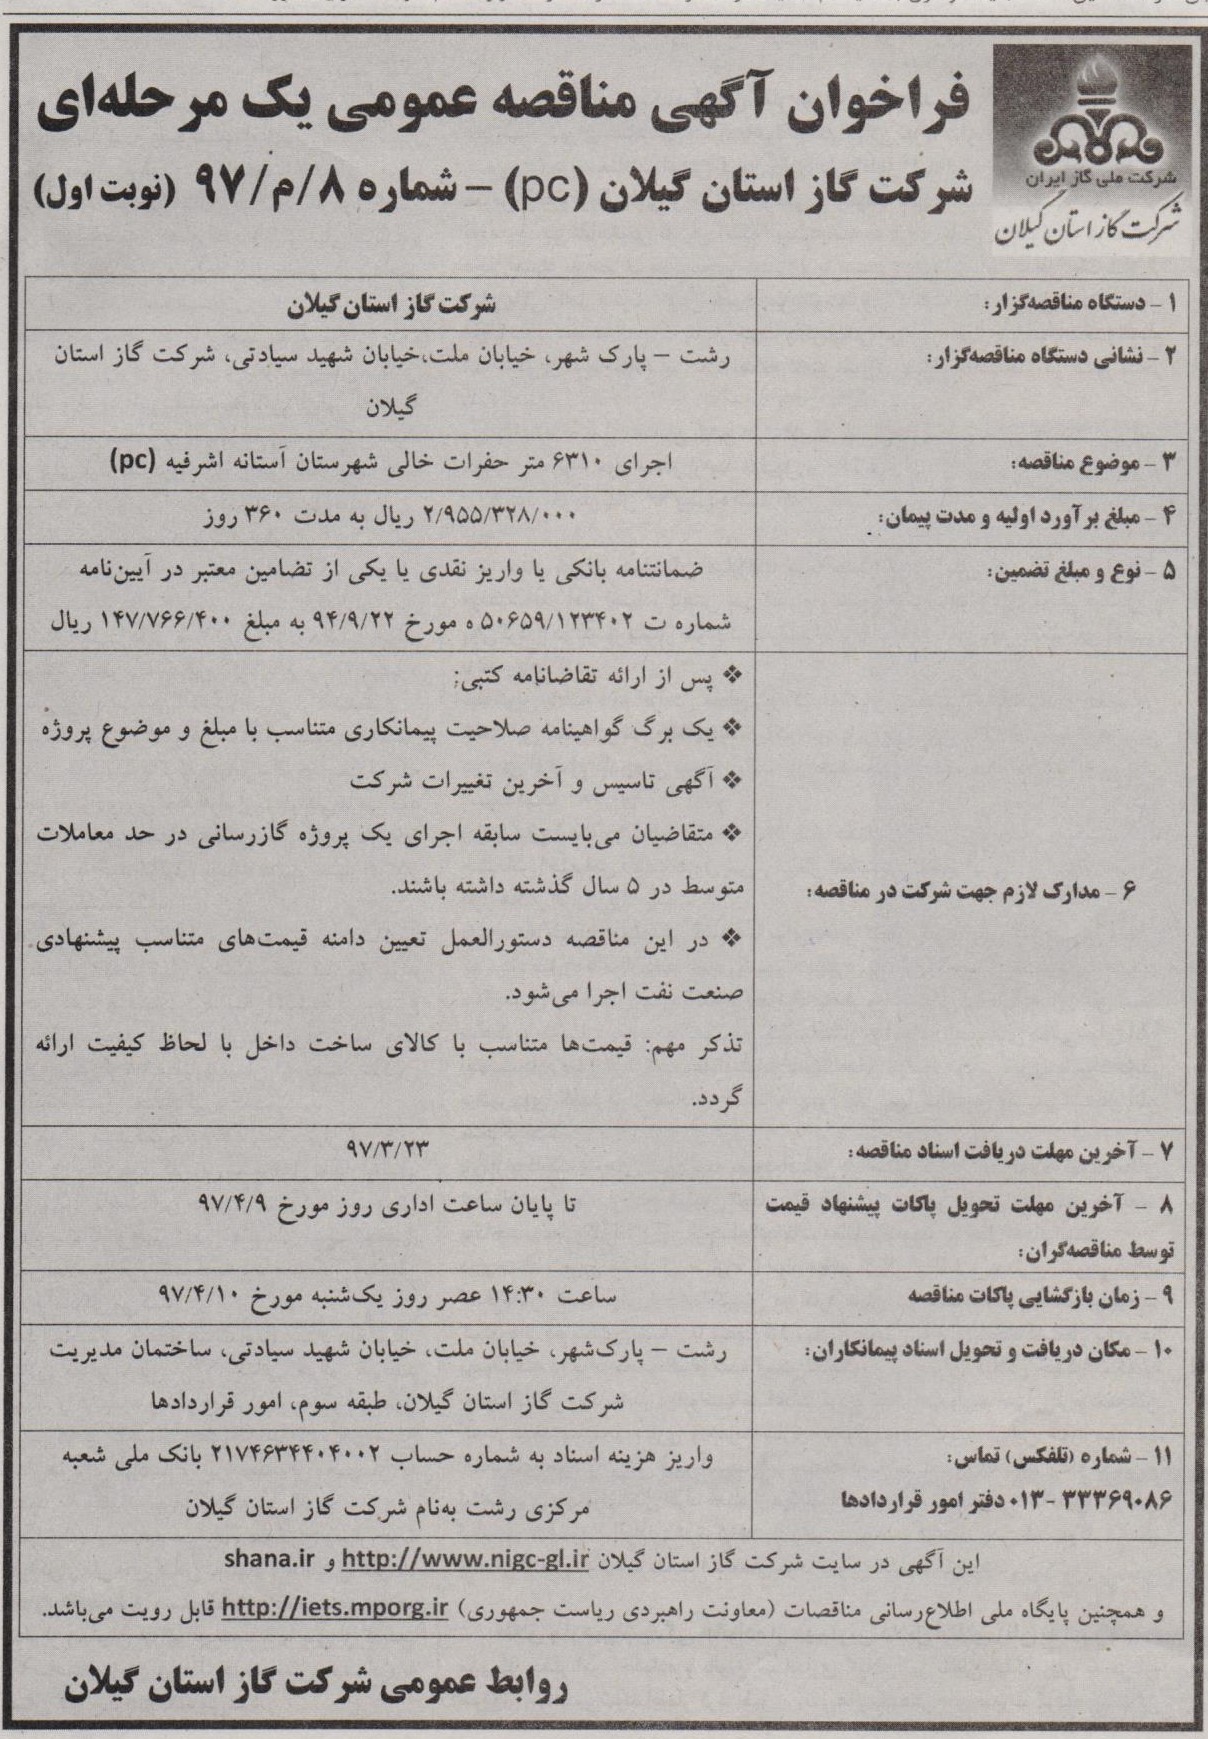 فراخوان آگهی مناقصه عمومی یک مرحله‌ای
شرکت گاز استان گیلان (pc) – شماره ۸/م/۹۷ (نوبت اول)
شرکت ملی گاز ایران
شرکت گاز استان گیلان
۱ – دستگاه مناقصه‌گزار:
شرکت گاز استان گیلان
۲ – نشانی دستگاه مناقصه‌گزار:
رشت – پارک شهر، خیابان ملت،خیابان شهید سیادتی، شرکت گاز استان
گیلان
۳ – موضوع مناقصه:
اجرای ۶۳۱۰ متر حفرات خالی شهرستان آستانه اشرفیه (pc)
۴ – مبلغ برآورد اولیه و مدت پیمان:
۲/۹۵۵/۳۲۸/۰۰۰ ریال به مدت ۳۶۰ روز
۵ – نوع و مبلغ تضمین:
ضمانتنامه بانکی یا واریز نقدی یا یکی از تضامین معتبر در آیین‌نامه
شماره ت ۵۰۶۵۹/۱۲۳۴۰۲ ه مورخ ۹۴/۹/۲۲ به مبلغ ۱۴۷/۷۶۶/۴۰۰ ریال
۶ – مدارک لازم جهت شرکت در مناقصه:
❖ پس از ارائه تقاضانامه کتبی;
❖ یک برگ گواهینامه صلاحیت پیمانکاری متناسب با مبلغ و موضوع پروژه
❖ آگهی تاسیس و آخرین تغییرات شرکت
❖ متقاضیان می‌بایست سابقه اجرای یک پروژه گازرسانی در حد معاملات
متوسط در ۵ سال گذشته داشته باشند.
❖ در این مناقصه دستورالعمل تعیین دامنه قیمت‌های متناسب پیشنهادی
صنعت نفت اجرا می‌شود.
تذکر مهم: قیمت‌ها متناسب با کالای ساخت داخل با لحاظ کیفیت ارائه
گردد.
۷ – آخرین مهلت دریافت اسناد مناقصه:
۹۷/۳/۲۳
۸ – آخرین مهلت تحویل پاکات پیشنهاد قیمت
توسط مناقصه‌گران:
تا پایان ساعت اداری روز مورخ ۹۷/۴/۹
۹ – زمان بازگشایی پاکات مناقصه
ساعت ۱۴:۳۰ عصر روز یک‌شنبه مورخ ۹۷/۴/۱۰
۱۰ – مکان دریافت و تحویل اسناد پیمانکاران:
رشت – پارک‌شهر، خیابان ملت، خیابان شهید سیادتی، ساختمان مدیریت
شرکت گاز استان گیلان، طبقه سوم، امور قراردادها
۱۱ – شماره (تلفکس) تماس:
۳۳۳۶۹۰۸۶ -۰۱۳ دفتر امور قراردادها
واریز هزینه اسناد به شماره حساب ۲۱۷۴۶۳۴۴۰۴۰۰۲ بانک ملی شعبه
مرکزی رشت به‌نام شرکت گاز استان گیلان
این آگهی در سایت شرکت گاز استان گیلان http://www.nigc-gl.ir و shana.ir
و همچنین پایگاه ملی اطلاع‌رسانی مناقصات (معاونت راهبردی ریاست جمهوری) http://iets.mporg.ir قابل رویت می‌باشد.
روابط عمومی شرکت گاز استان گیلان